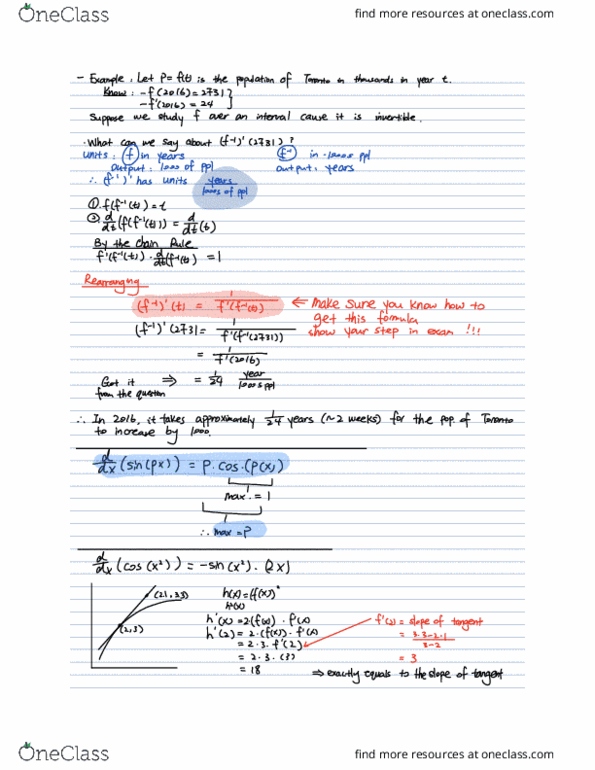 OneClass
find more resources at oneclass.com
- Example: Let P = f(t) is the population of Toronto in thousands in year t.
Know: - f(2016) = 2731
- f'(2016) = 24
Suppose we study f over an interval cause it is invertible.
. What can we say about (f⁻¹)'(2731)?
units: f in years
output: 1000 of ppl
f⁻¹ in 1000 ppl
output: years
∴ (f⁻¹)' has units years / 1000s of ppl
① f(f⁻¹(t)) = t
② d/dt (f(f⁻¹(t)) = d/dt (t)
By the Chain Rule
f'(f⁻¹(t)) · d/dt (f⁻¹(t)) = 1
Rearranging
(f⁻¹)'(t) = 1 / f'(f⁻¹(t))
← make sure you know how to
get this formula
show your step in exam !!!
(f⁻¹)'(2731) = 1 / f'(f⁻¹(2731))
= 1 / f'(2016)
Got it from the question ⇒ = 1/24 year / 1000s ppl
∴ In 2016, it takes approximately 1/24 years (~2 weeks) for the pop. of Toronto
to increase by 1000.
d/dx (sin(px)) = P. cos.(p(x))
max = 1
∴ max = P
d/dx (cos(x²)) = -sin(x²). (2x)
(2.1, 3.3)
(2,3)
h(x) = (f(x))²
h'(x) = 2(f(x)) · f'(x)
h'(2) = 2·(f(x))· f'(x)
= 2·3· f'(2)
= 2·3·(3)
= 18
f'(2) = slope of tangent
= 3.3-2.1 / 3-2
= 3
⇒ exactly equals to the slope of tangent
OneClass
find more resources at oneclass.com